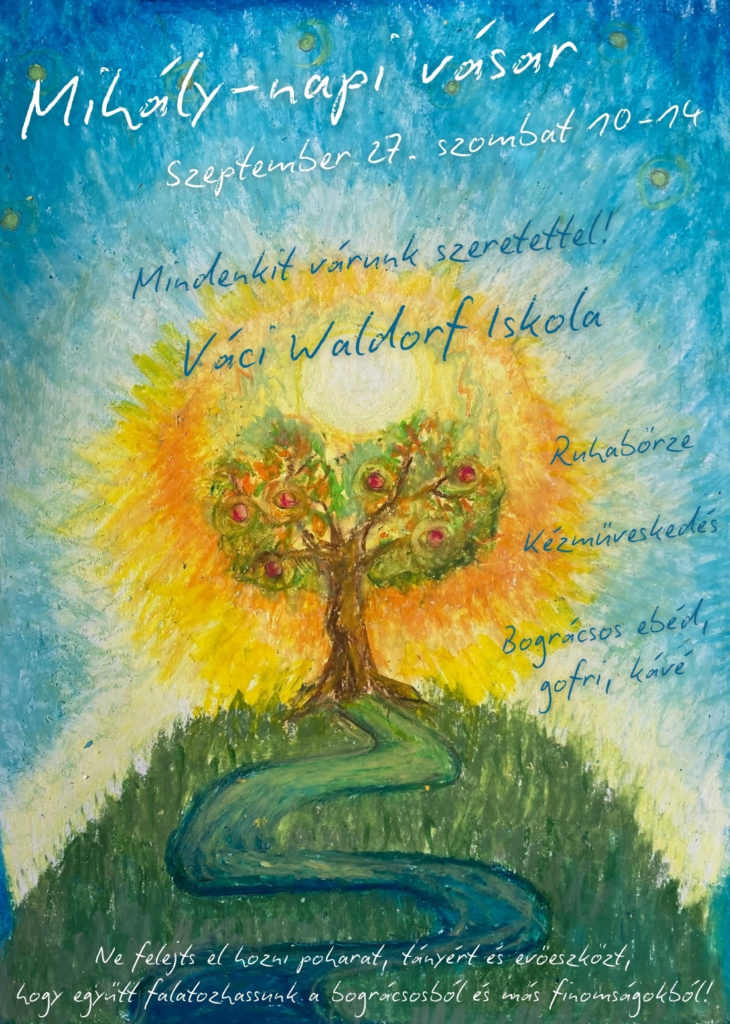 Mihály-napi vásár
Szeptember 27. szombat 10-14
Mindenkit várunk szeretettel!
Váci Waldorf Iskola
Ruhabörze
Kézműveskedés
Bográcsos ebéd,
gofri, kávé
Ne felejts el hozni poharat, tányért és evőeszközt,
hogy együtt falatozhassunk a bográcsosból és más finomságokból!